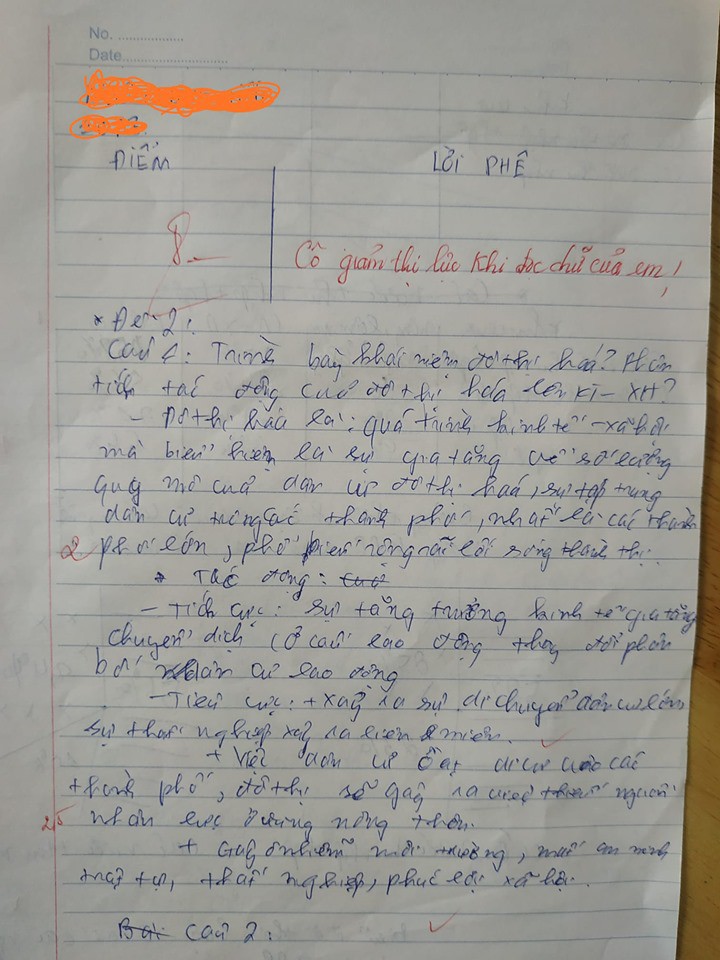 No. ..................
Date..............................
ĐIỂM
LỜI PHÊ
8.
Cô giảm thị lực khi đọc chữ của em!
* Đề 2:
Câu 1: Trình bày khái niệm đô thị hoá? Phân
tích tác động của đô thị hóa lên KT - XH?
- Đô thị hoá là: quá trình kinh tế - xã hội
mà biểu hiện là sự gia tăng về số lượng
quy mô của dân cư đô thị hoá, sự tập trung
dân cư trong các thành phố, nhất là các thành
2 phố lớn, phổ biến rộng rãi lối sống thành thị.
* Tác động:
- Tích cực: sự tăng trưởng kinh tế gia tăng
chuyển dịch cơ cấu lao động thay đổi phân
bố dân cư lao động
- Tiêu cực: + xảy ra sự di chuyển dân cư lớn
sự thất nghiệp xảy ra liên miên.
+ Việc dân cư ồ ạt di cư vào các
thành phố, đô thị sẽ gây ra việc thiếu nguồn
2,5 nhân lực ở vùng nông thôn.
+ Gây ô nhiễm môi trường, mất an ninh
trật tự, thất nghiệp, phúc lợi xã hội.
Bài Câu 2: